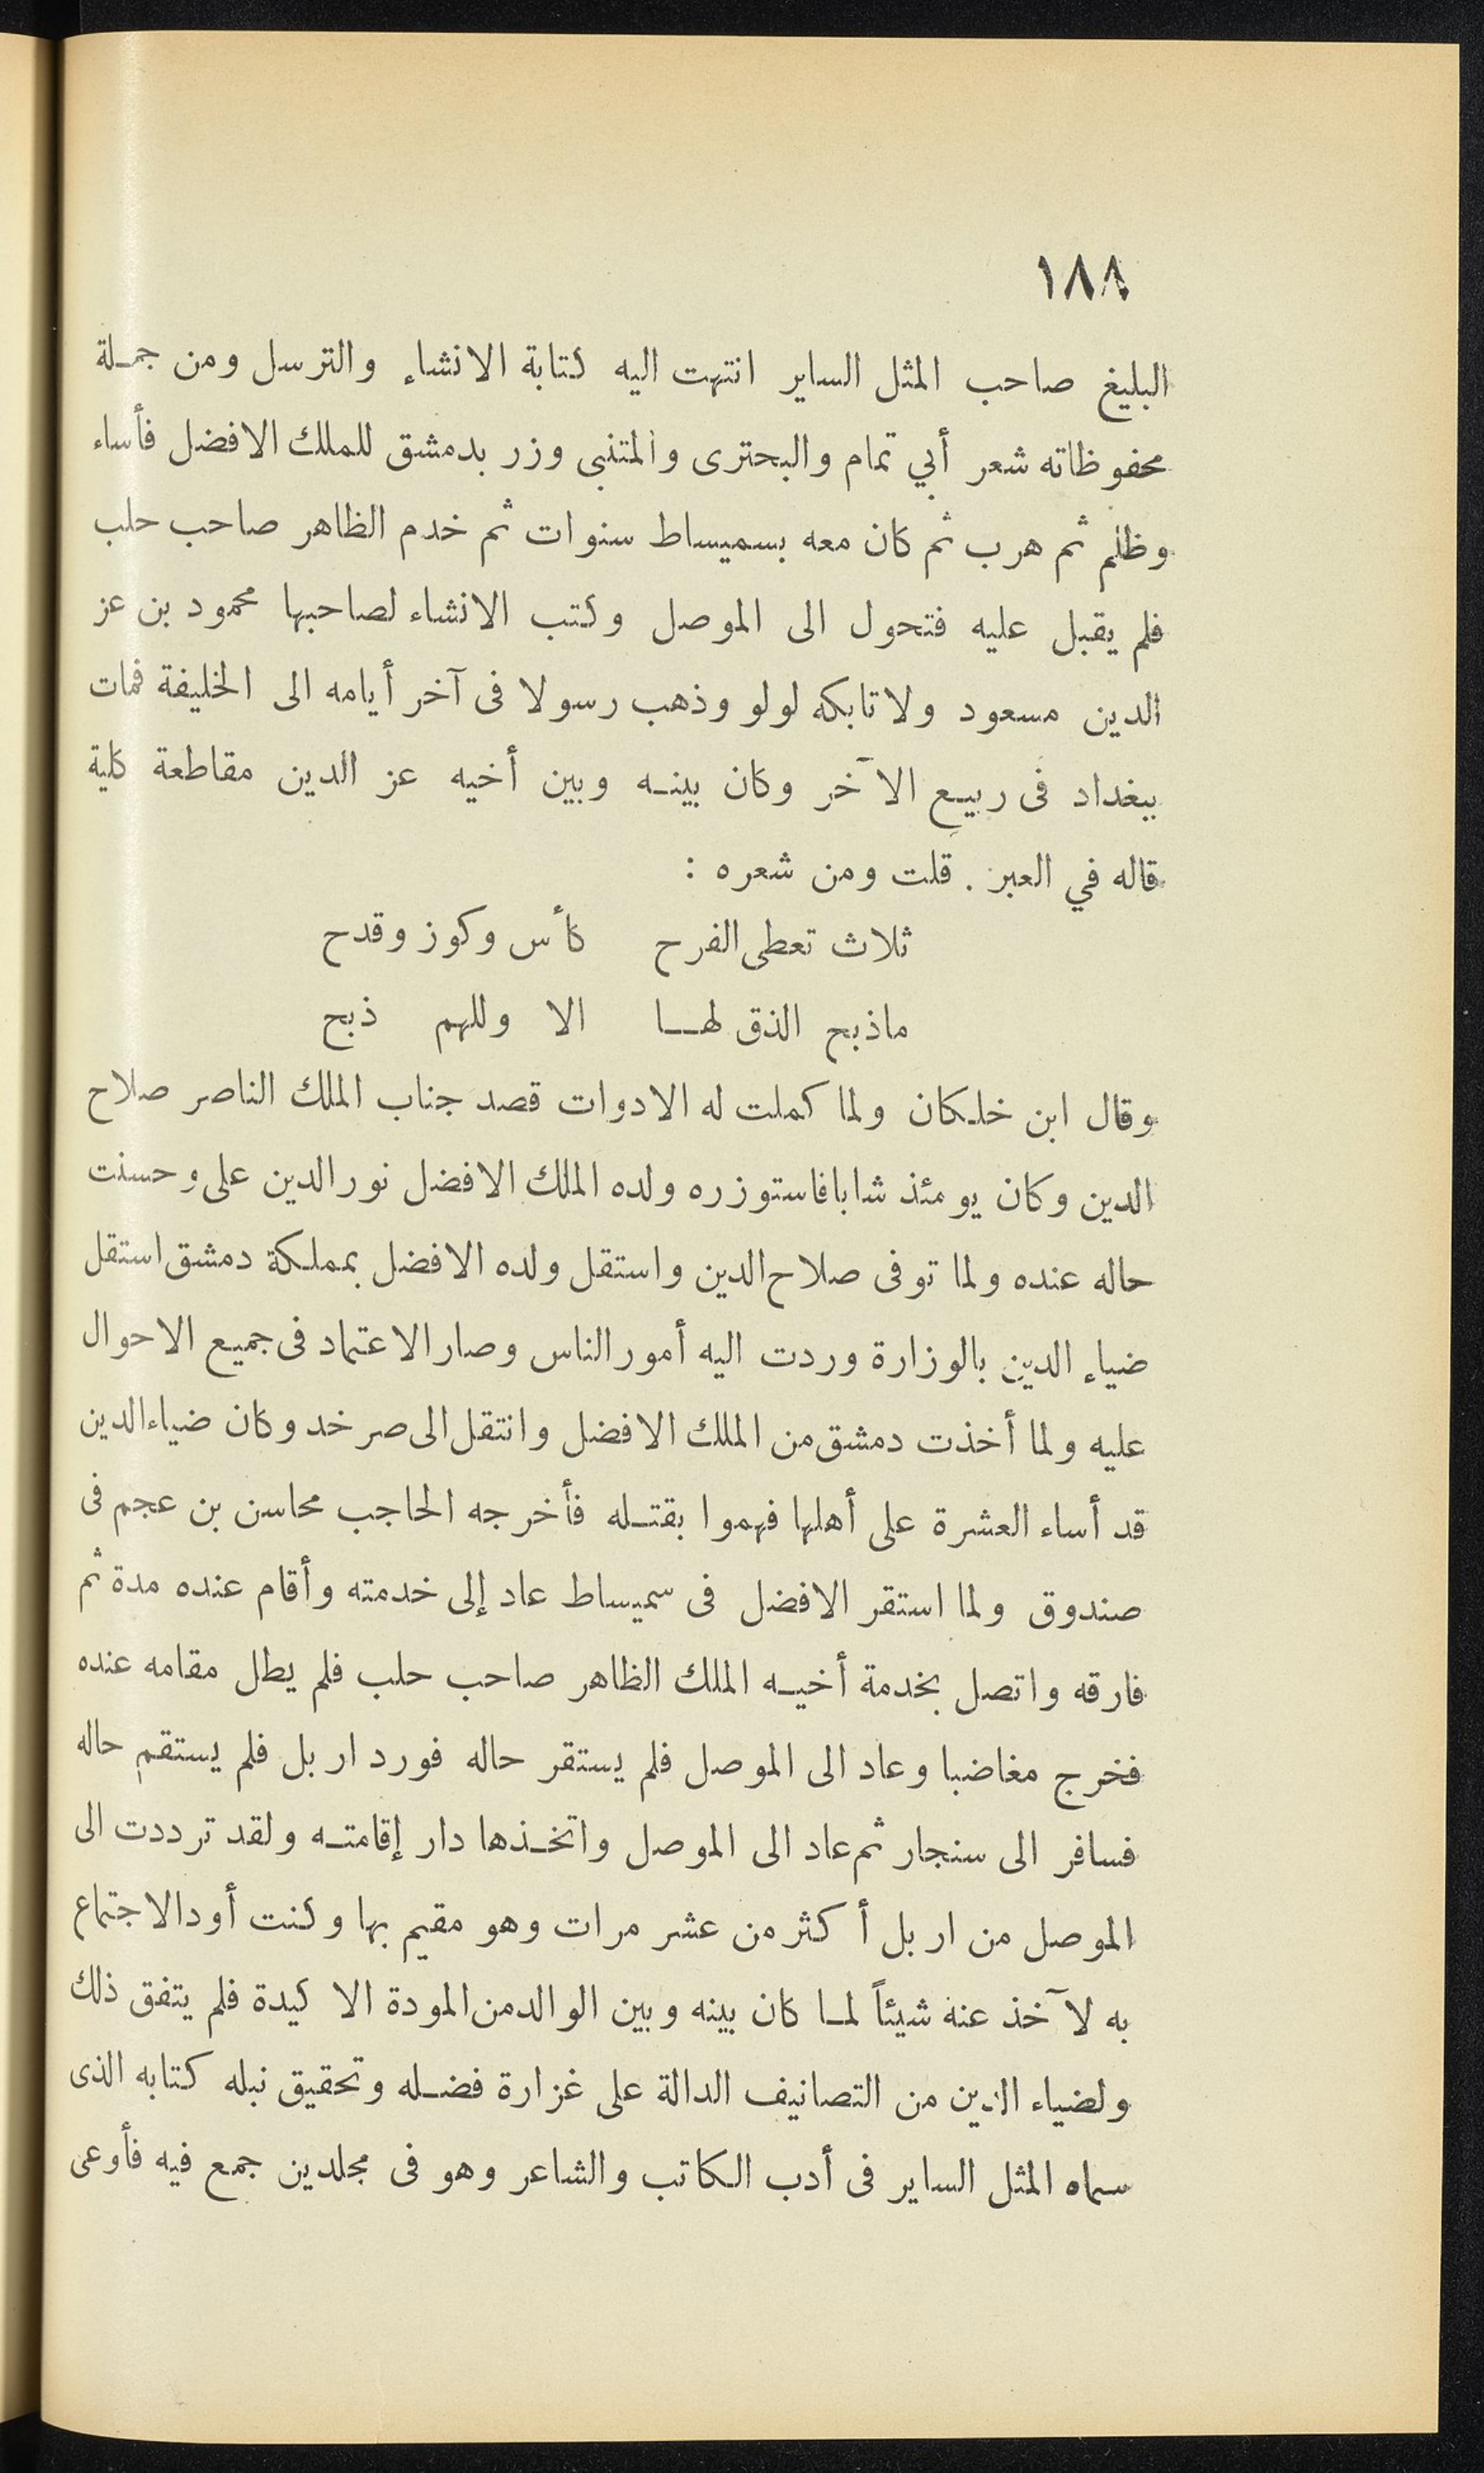 ١٨٨
البليغ صاحب المثل الساير انتهت اليه كتابة الانشاء والترسل ومن جملة
محفوظاته شعر أبي تمام والبحترى والمتنبى وزر بدمشق للملك الافضل فأساء
وظلم ثم هرب ثم كان معه بسميساط سنوات ثم خدم الظاهر صاحب حلب
فلم يقبل عليه فتحول الى الموصل وكتب الانشاء لصاحبها محمود بن عز
الدين مسعود ولاتابكه لولو وذهب رسولا فى آخر أيامه الى الخليفة فمات
ببغداد فى ربيع الآخر وكان بينه وبين أخيه عز الدين مقاطعة كلية
قاله في العبر . قلت ومن شعره :
ثلاث تعطى الفرح كأس وكوز وقدح
ماذبح الذق لها الا وللهم ذبح
وقال ابن خلكان ولما كملت له الادوات قصد جناب الملك الناصر صلاح
الدين وكان يومئذ شابا فاستوزره ولده الملك الافضل نور الدين على وحسنت
حاله عنده ولما توفى صلاح الدين واستقل ولده الافضل بمملكة دمشق استقل
ضياء الدين بالوزارة وردت اليه أمور الناس وصار الاعتماد فى جميع الاحوال
عليه ولما أخذت دمشق من الملك الافضل وانتقل الى صرخد وكان ضياء الدين
قد أساء العشرة على أهلها فهموا بقتله فأخرجه الحاجب محاسن بن عجم فى
صندوق ولما استقر الافضل فى سميساط عاد إلى خدمته وأقام عنده مدة ثم
فارقه واتصل بخدمة أخيه الملك الظاهر صاحب حلب فلم يطل مقامه عنده
فخرج مغاضبا وعاد الى الموصل فلم يستقر حاله فورد اربل فلم يستقم حاله
فسافر الى سنجار ثم عاد الى الموصل واتخذها دار إقامته ولقد ترددت الى
الموصل من اربل أكثر من عشر مرات وهو مقيم بها وكنت أود الاجتماع
به لآخذ عنه شيئاً لما كان بينه وبين الوالد من المودة الا كيدة فلم يتفق ذلك
ولضياء الدين من التصانيف الدالة على غزارة فضله وتحقيق نبله كتابه الذى
سماه المثل الساير فى أدب الكاتب والشاعر وهو فى مجلدين جمع فيه فأوعى